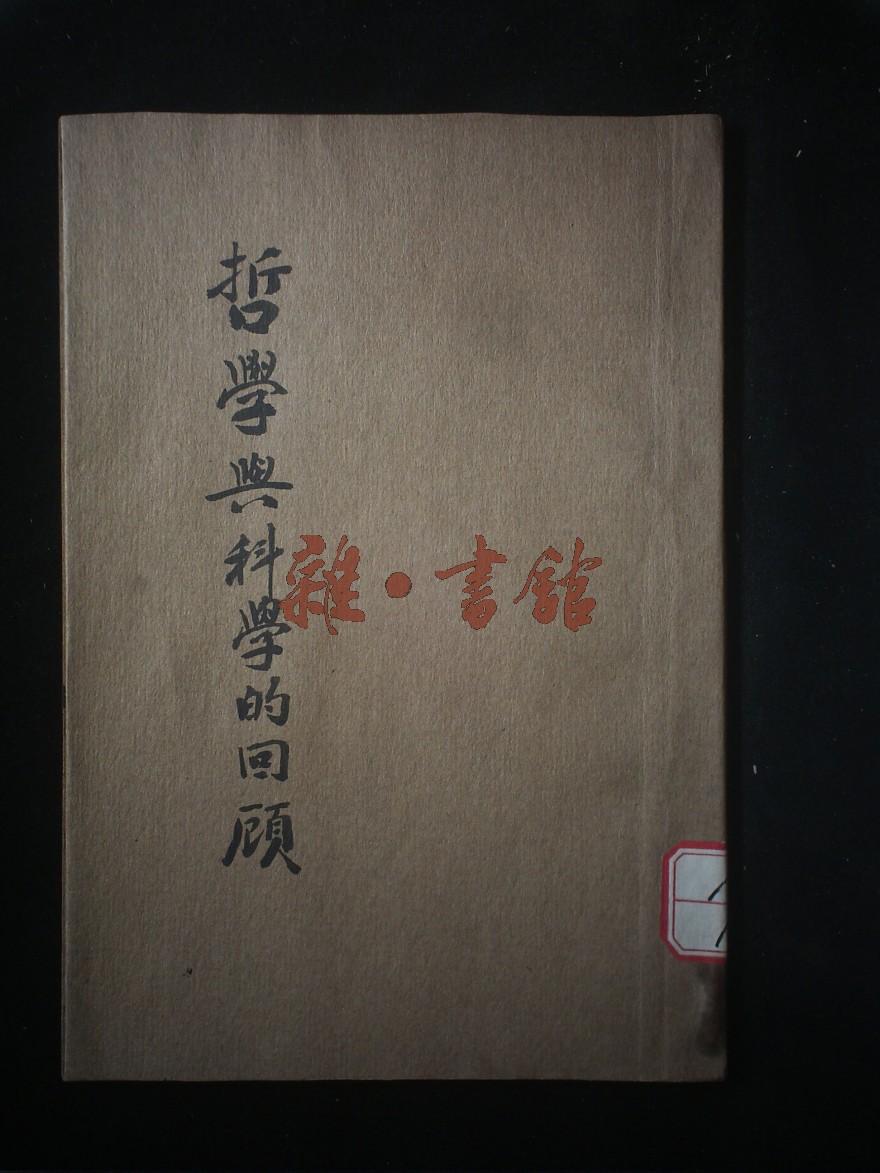 哲學與科學的回顧
雜·書館